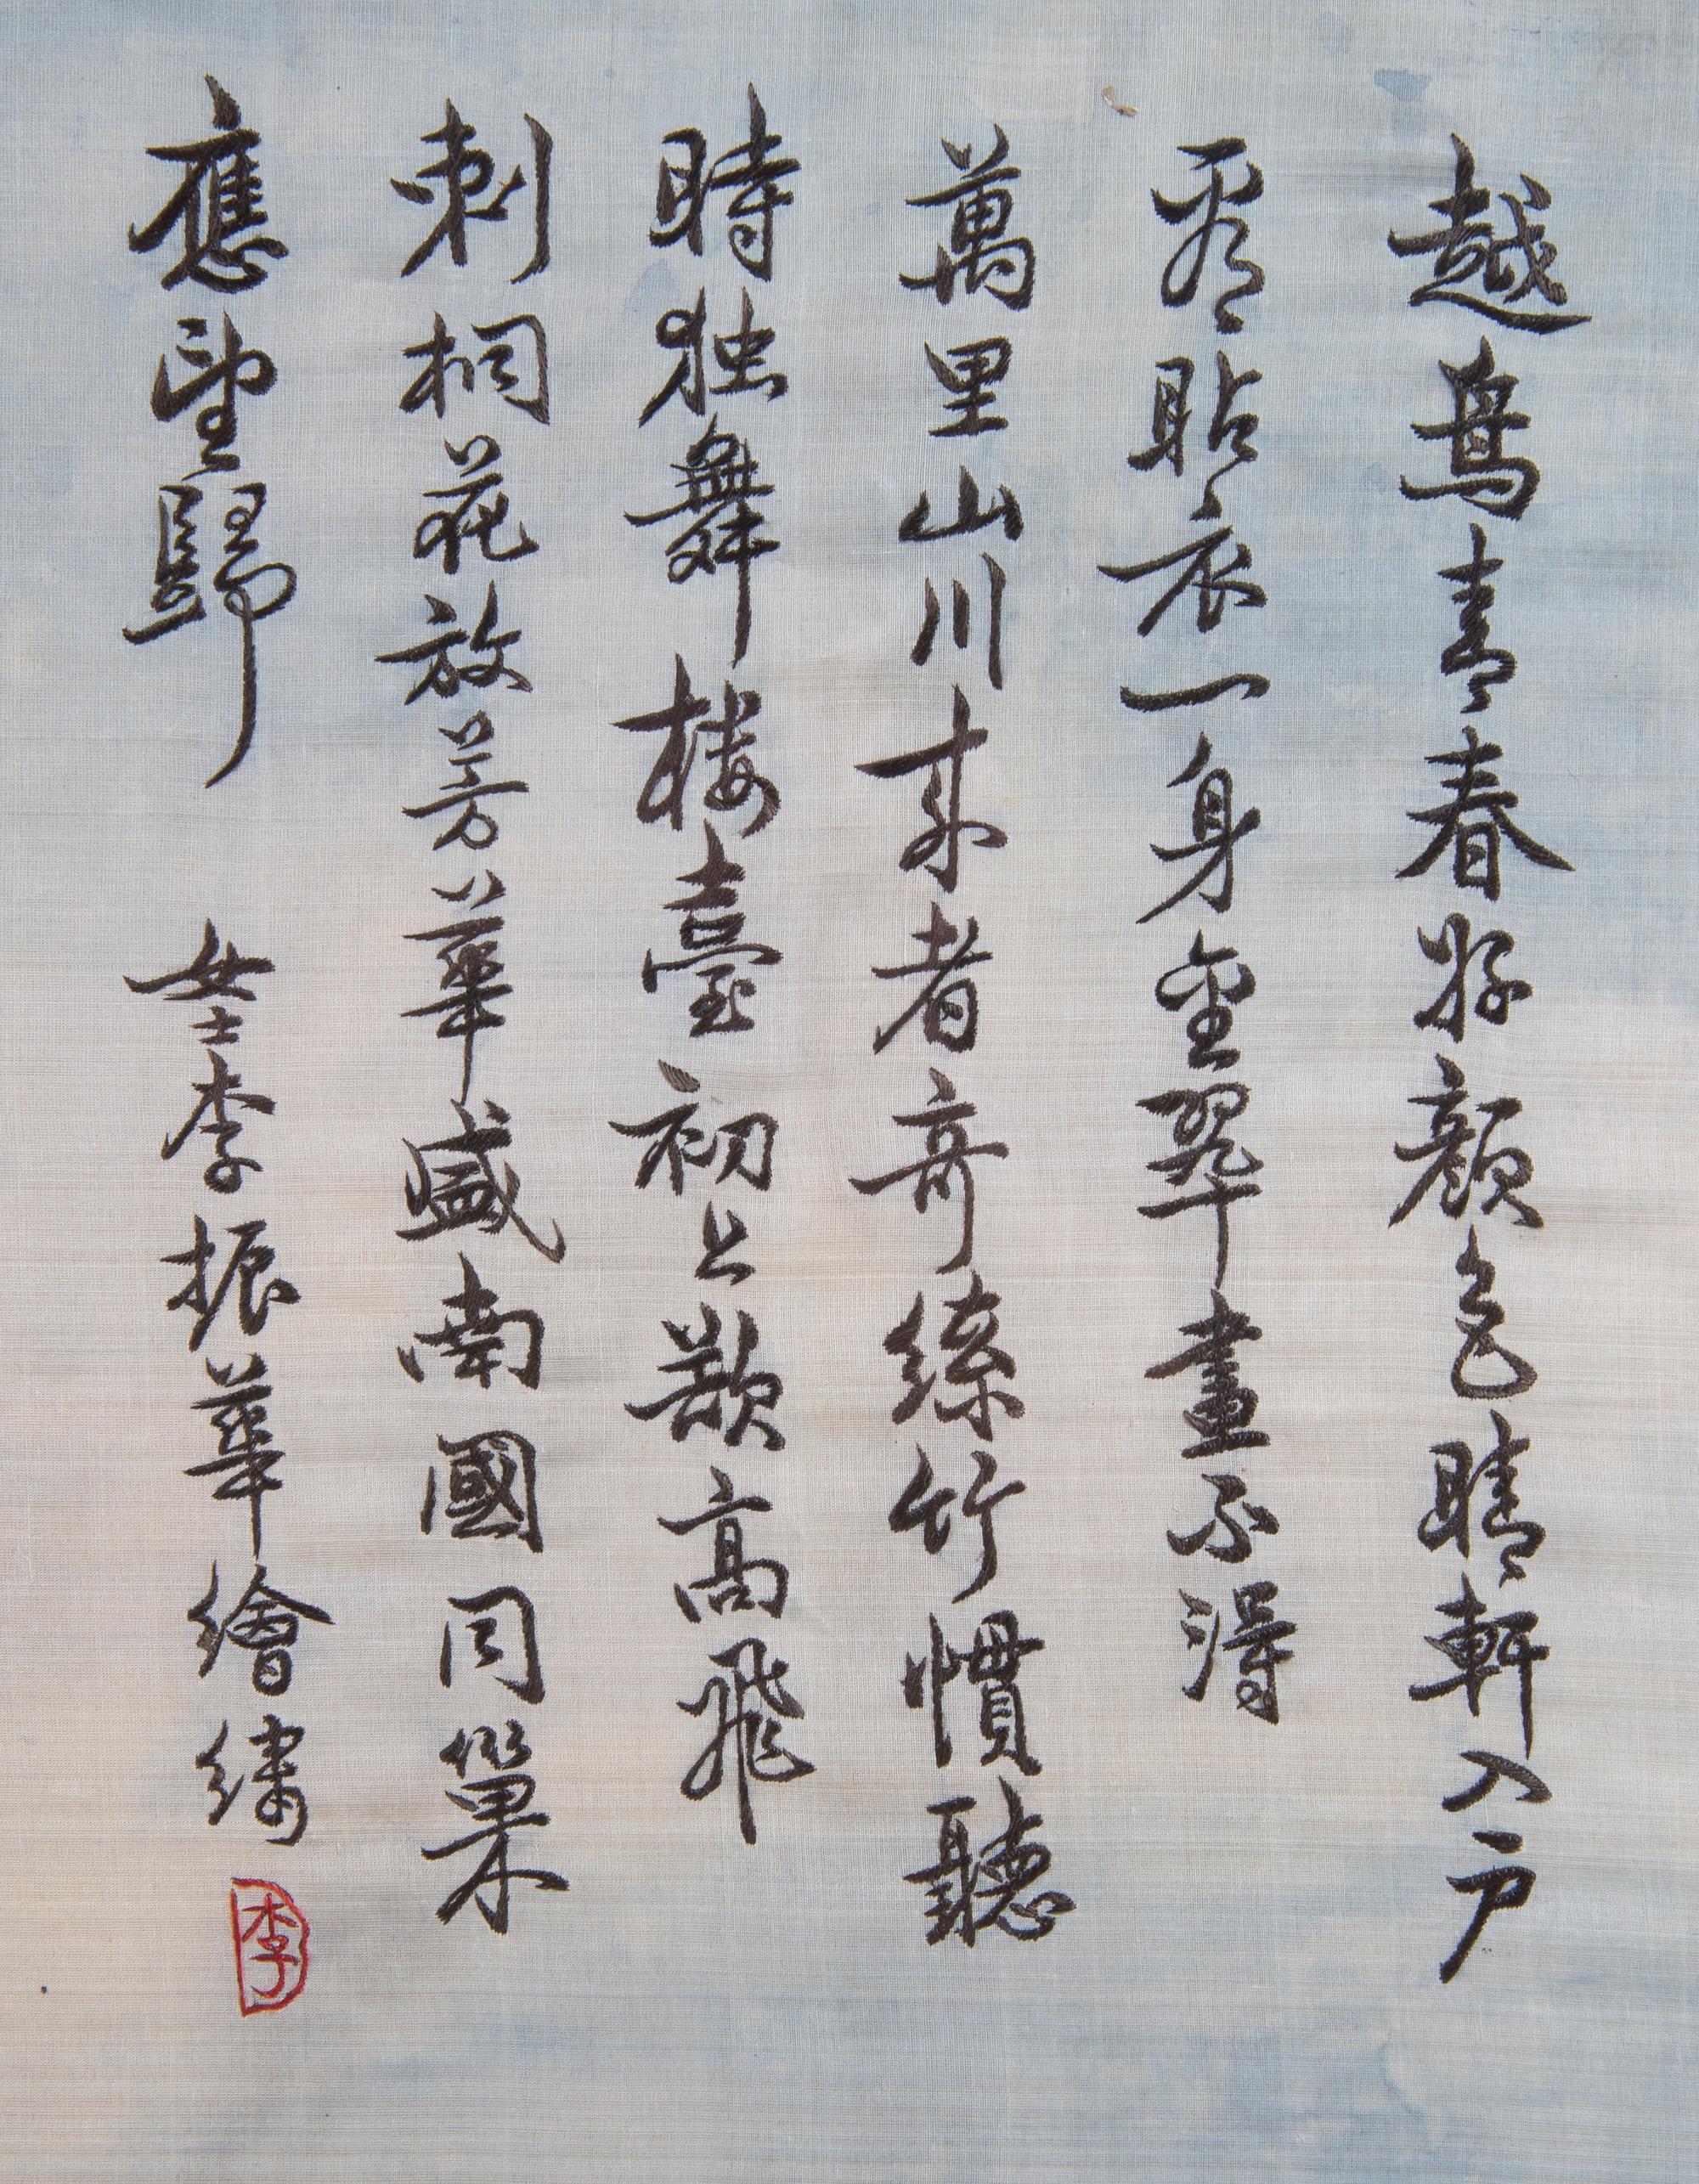 越鳥青春好顏色晴軒入户
看貼衣一身金翠畫不得
萬里山川来者奇絲竹慣聽
時独舞楼臺初上歡高飛
刺桐花放芳華盛南國同巢
應望歸 女士李振華繪繡
李